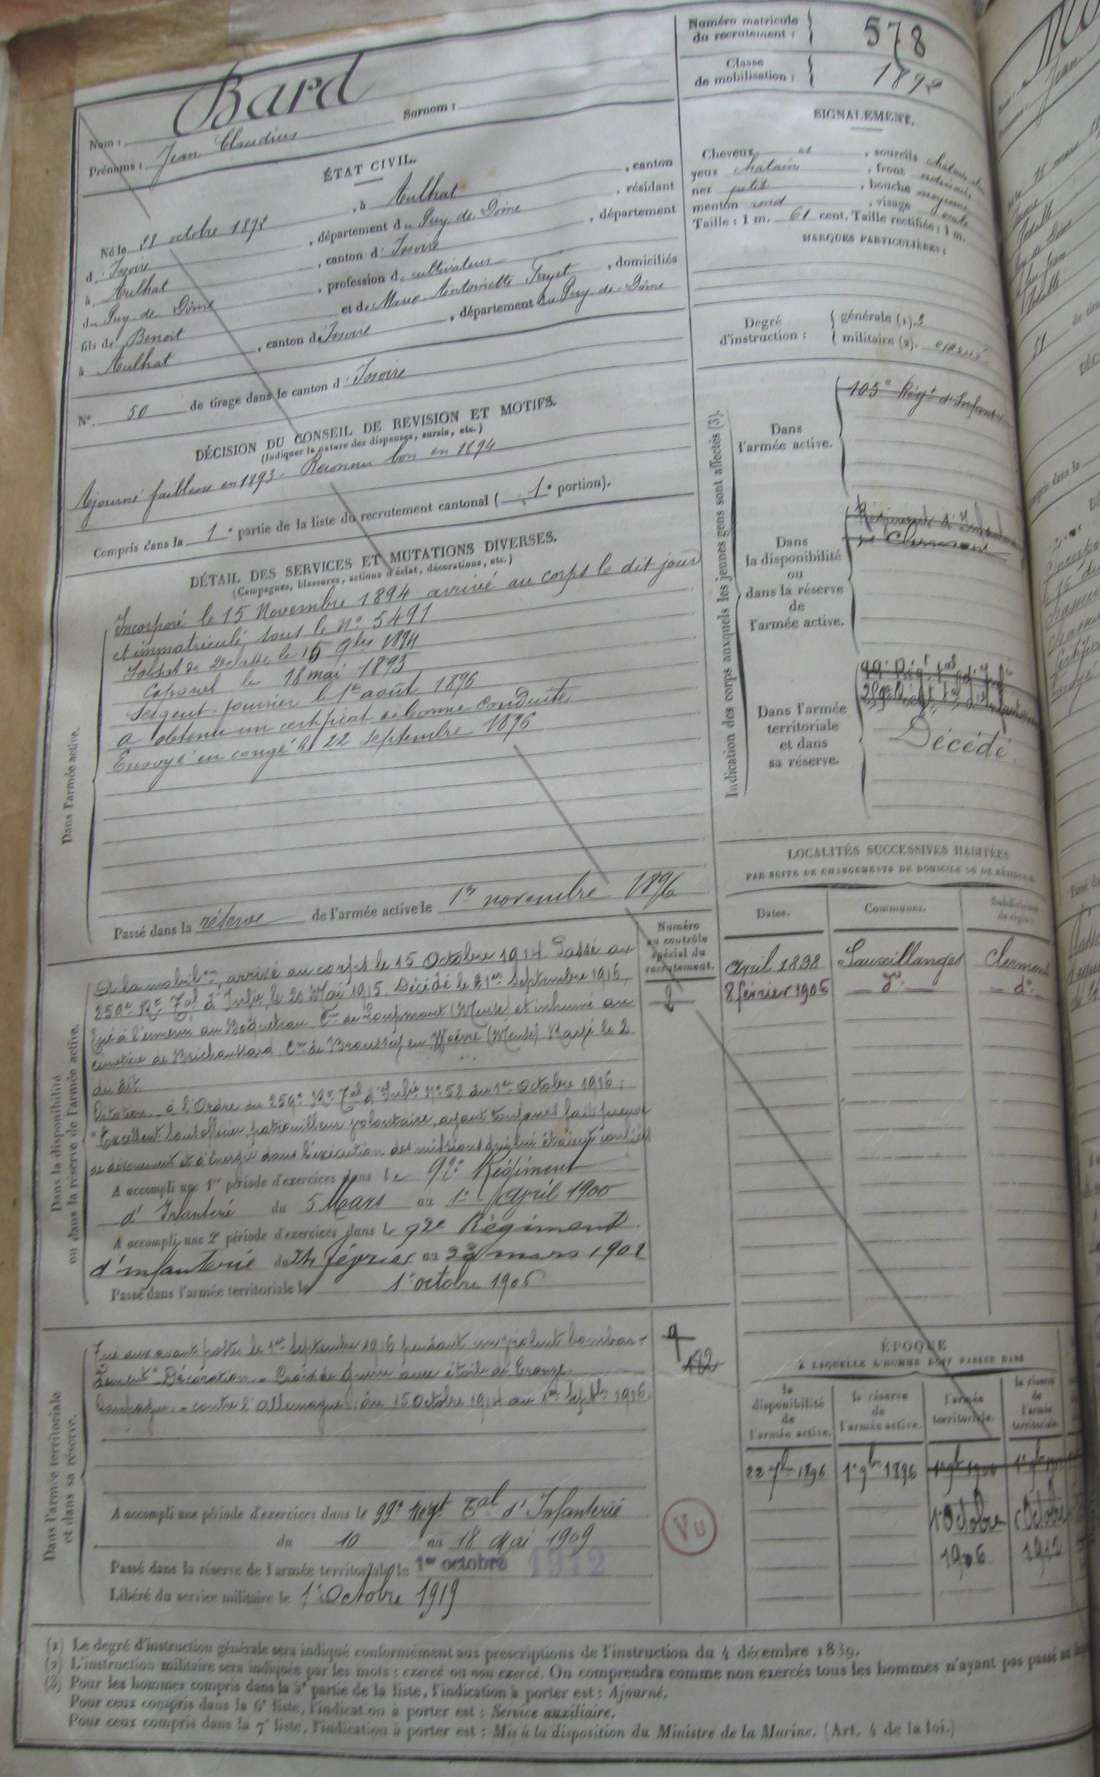 Numéro matricule du recrutement : 578
Classe de mobilisation : 189
Nom : Bard
Prénoms : Jean Claudius Surnom :
ÉTAT CIVIL.
Né le 28 octobre 1872, à Aulhat, canton
d'Issoire, département du Puy de Dôme, résidant
à Aulhat, canton d'Issoire, département
du Puy de Dôme, profession de cultivateur
fils de Benoît et de Marie Antoinette, domiciliés
à Aulhat, canton d'Issoire, département du Puy-de-Dôme
N° 50 de tirage dans le canton d'Issoire
SIGNALEMENT.
Cheveux et, sourcils châtains
yeux châtain, front
nez petit, bouche moyenne
menton rond, visage
Taille : 1 m. 61 cent. Taille rectifiée : 1 m.
MARQUES PARTICULIÈRES :
Degré d'instruction : { générale (1). 3
{ militaire (2). exercé
DÉCISION DU CONSEIL DE REVISION ET MOTIFS.
(Indiquer la nature des dispenses, sursis, etc.)
Ajourné faiblesse en 1893 - Reconnu bon en 1894
Compris dans la 1e partie de la liste du recrutement cantonal (1e portion).
DÉTAIL DES SERVICES ET MUTATIONS DIVERSES.
(Campagnes, blessures, actions d'éclat, décorations, etc.)
Dans l'armée active.
Incorporé le 15 Novembre 1894 arrivé au corps le dit jour
et immatriculé sous le N° 5491
Soldat de 2e classe le 15 9bre 1894
Caporal le 18 mai 1895
Sergent-fourrier le 1er août 1896
A obtenu un certificat de bonne conduite
Envoyé en congé le 22 septembre 1896
Passé dans la réserve de l'armée active le 1er novembre 1896
Indication des corps auxquels les jeunes gens sont affectés (3).
Dans l'armée active.
105e Régt d'Infanterie
Dans la disponibilité ou dans la réserve de l'armée active.
Régiment d'Infanterie
de Clermont
Dans l'armée territoriale et dans sa réserve.
99e Régt Tal d'Infie
259e Régt Tal d'Infanterie
Décédé
LOCALITÉS SUCCESSIVES HABITÉES
PAR SUITE DE CHANGEMENTS DE DOMICILE OU DE RÉSIDENCE.
Dates. Communes. Subdivisions de région.
Avril 1898 Sauxillanges Clermont
8 février 1906 do do
Dans la disponibilité ou dans la réserve de l'armée active.
Numéro au contrôle spécial du recrutement.
2
arrivé au corps le 15 Octobre 1914 Passé au
259e Rt Tal d'Infie le 20 Mai 1915. Décédé le 1er Septembre 1916,
Tué à l'ennemi au Boqueteau Cne de Loupmont (Meuse) et inhumé au
cimetière de Brichaussard Cne de Broussey en Woëvre (Meuse). Rayé le 2
du dit.
Citation à l'Ordre du 259e Rt Tal d'Infie N° 58 du 1er Octobre 1916 :
"Excellent sous officier, patrouilleur volontaire, ayant toujours fait preuve
de dévouement et d'énergie dans l'exécution des missions qui lui étaient confiées
A accompli une 1re période d'exercices dans le 92e Régiment
d'Infanterie du 5 Mars au 1er Avril 1900
A accompli une 2e période d'exercices dans le 92e Régiment
d'infanterie du 24 février au 23 mars 1902
Passé dans l'armée territoriale le 1er octobre 1906
Dans l'armée territoriale et dans sa réserve.
Tué aux avant postes le 1er Septembre 1916 pendant un violent bombar-
dement" Décoration - Croix de guerre avec étoile de Bronze
Campagne - contre l'Allemagne : du 15 Octobre 1914 au 1er Septbre 1916.
A accompli une période d'exercices dans le 99e Régt Tal d'Infanterie
du 10 au 18 Mai 1909
Passé dans la réserve de l'armée territoriale le 1er octobre 1912
Libéré du service militaire le 1er Octobre 1919
VU
ÉPOQUE
À LAQUELLE L'HOMME DOIT PASSER DANS
la disponibilité de l'armée active. la réserve de l'armée active. l'armée territoriale. la réserve de l'armée territoriale.
22 7bre 1896 1er 9bre 1896
1er Octobre 1906 Octobre 1912
(1) Le degré d'instruction générale sera indiqué conformément aux prescriptions de l'instruction du 4 décembre 1889.
(2) L'instruction militaire sera indiquée par les mots : exercé ou non exercé. On comprendra comme non exercés tous les hommes n'ayant pas passé au
(3) Pour les hommes compris dans la 5e partie de la liste, l'indication à porter est : Ajourné.
Pour ceux compris dans la 6e liste, l'indication à porter est : Service auxiliaire.
Pour ceux compris dans la 7e liste, l'indication à porter est : Mis à la disposition du Ministre de la Marine. (Art. 4 de la loi.)